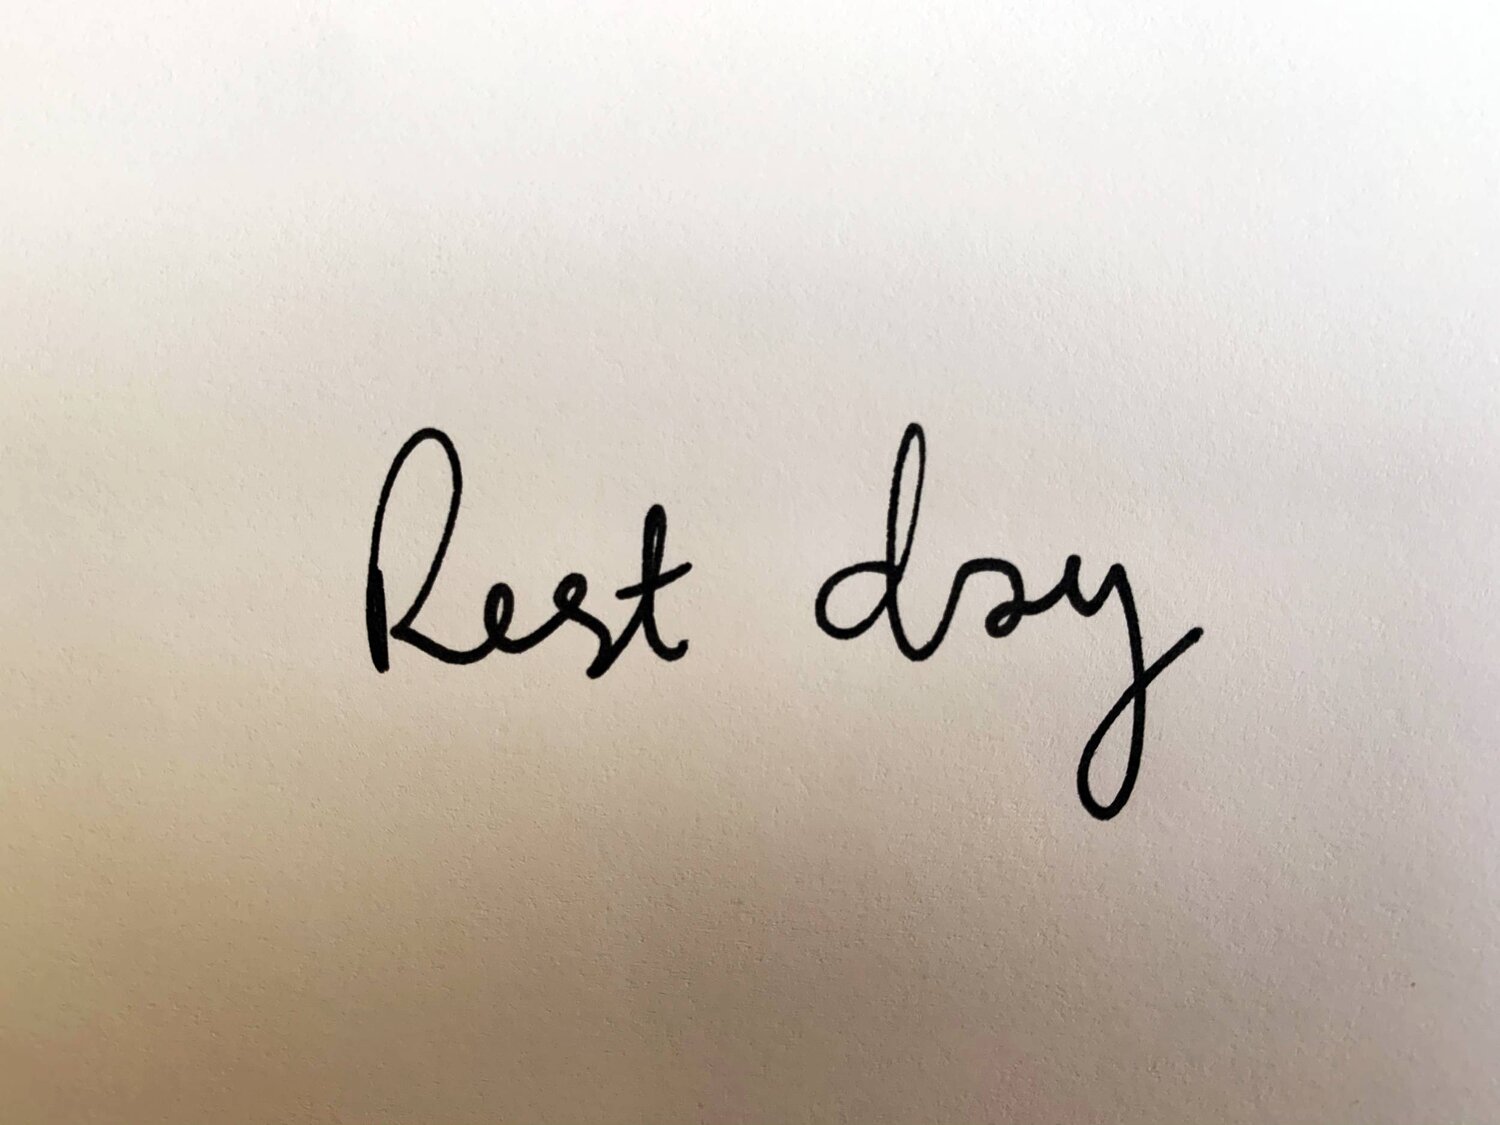 Rest day